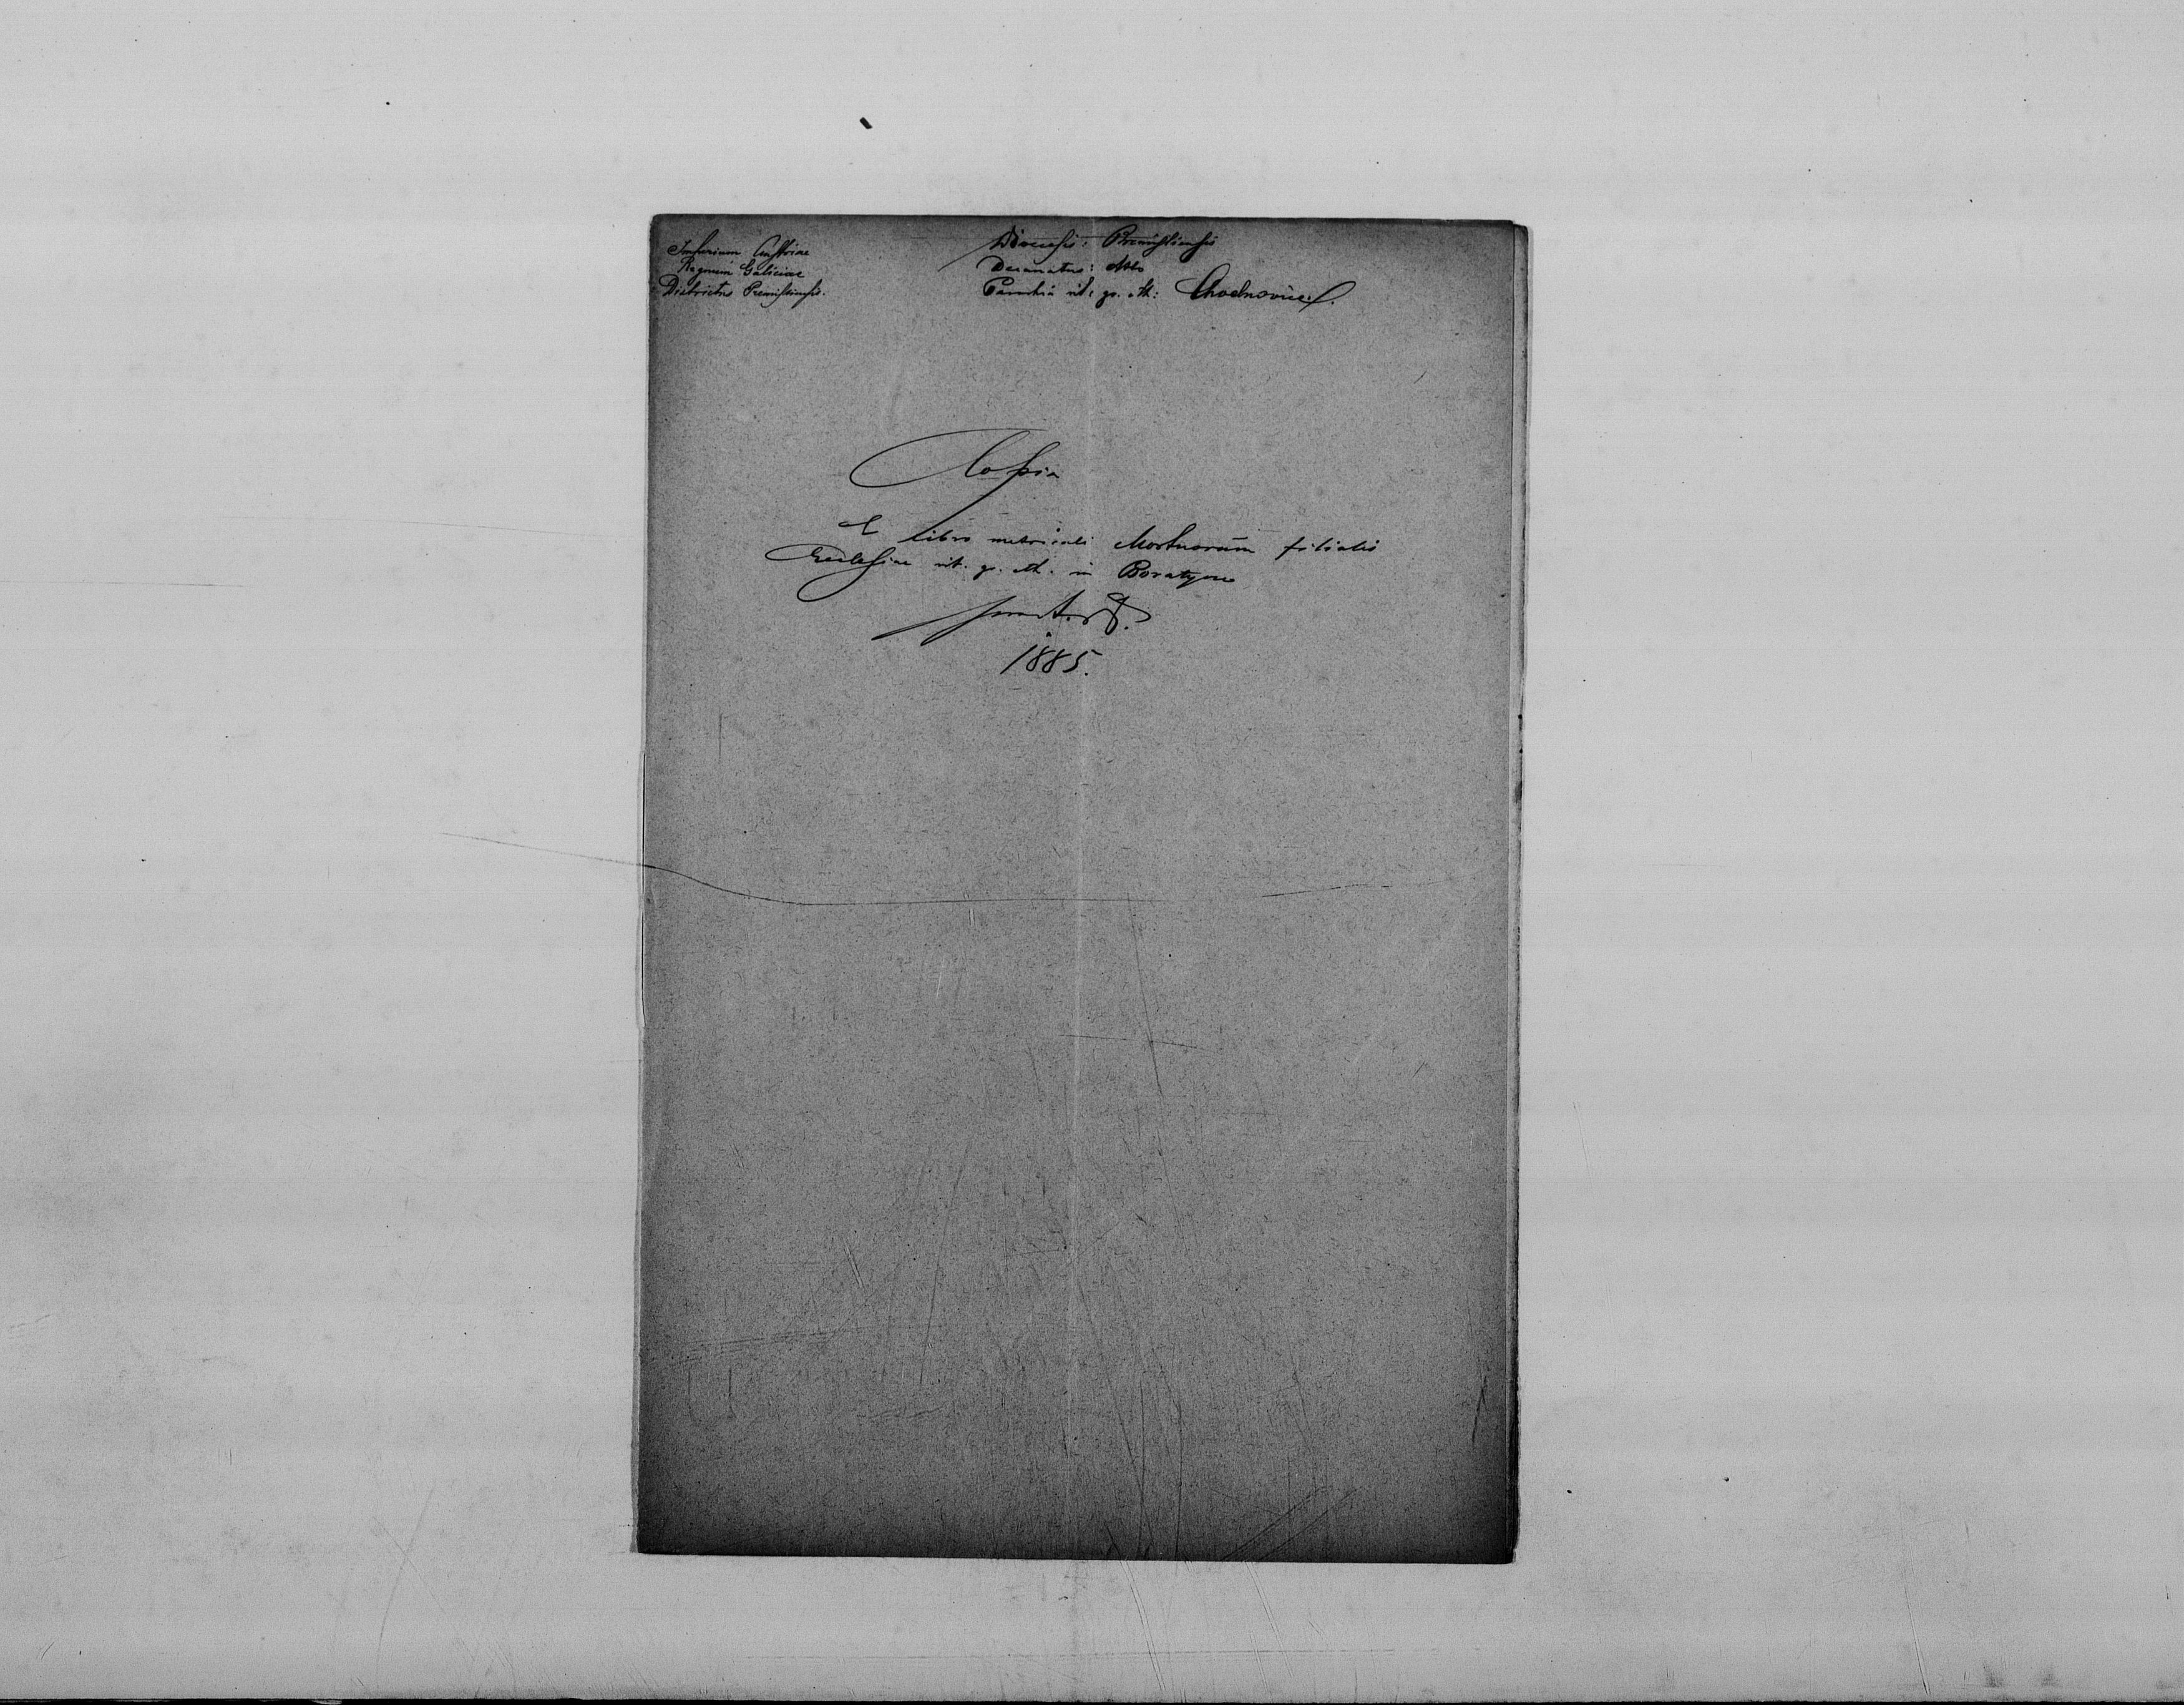 Imperium Austriae
Regnum Galiciae
Districtus Premisliensis.
Diocesis: Premisliensis
Decanatus:
Parochia rit: gr. cth: Chodnovice.
Copia
E libro metricali Mortuorum filialis
Ecclesiae rit. gr. cth. in Boratyne
pro A.D.
1885.